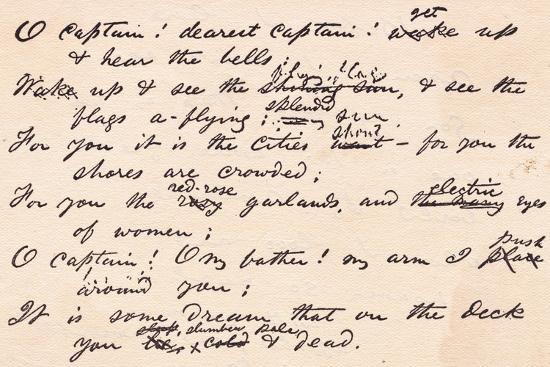 get
O captain! dearest captain! wake up
& hear the bells;
Wake up & see the shining sun, & see the
splendid
flags a-flying; sun,
shout
For you it is the cities want – for you the
shores are crowded;
red-rose electric
For you the rosy garlands, and the many eyes
of women;
push
O captain! O my father! my arm I place
around you;
It is some dream that on the deck
slumber pale
you cold & dead.